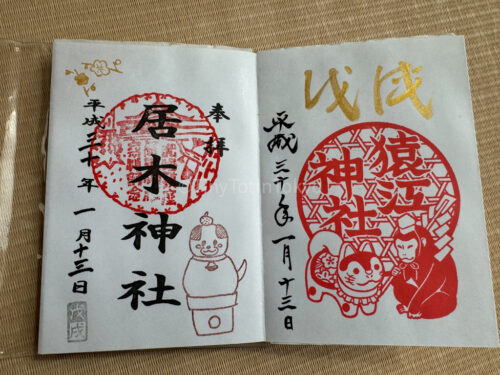 奉拝
居木神社
平成三十年一月十三日
戊戌
戊戌
猿江
神社
平成三十年一月十三日